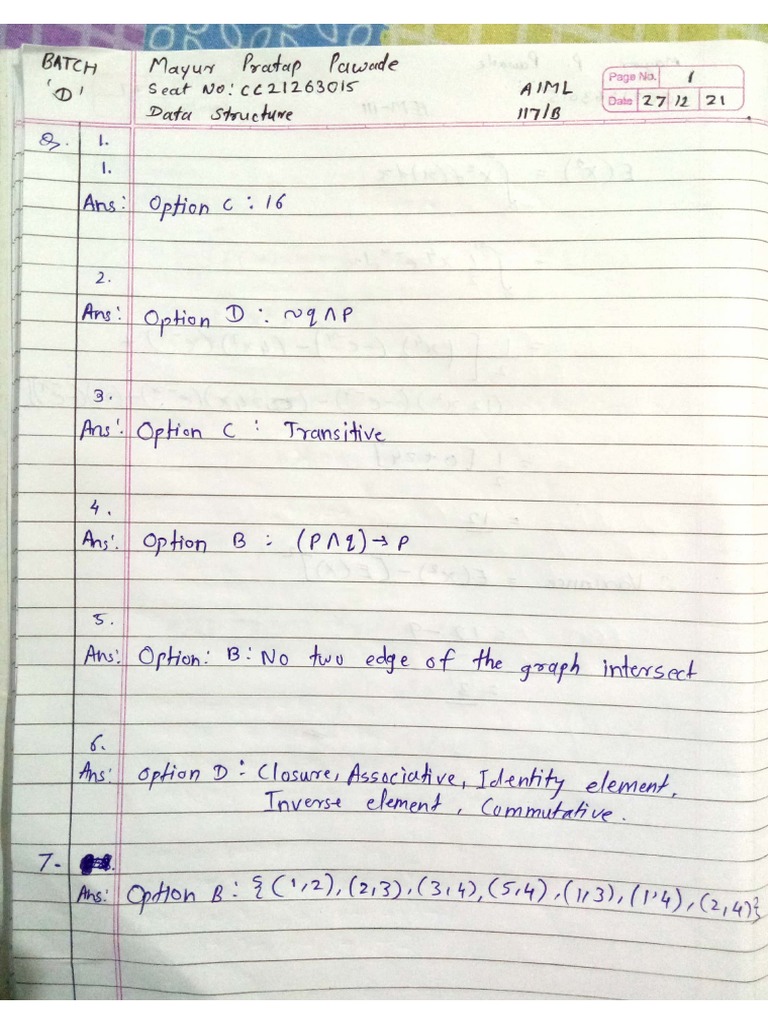 BATCH 'D'
Mayur Pratap Pawade
Seat No: CC21263015
Data Structure
AIML
117/B
Page No. 1
Date 27 12 21
Q. 1.
1.
Ans: Option C : 16
2.
Ans: Option D : ~q∧P
3.
Ans: Option C : Transitive
4.
Ans: Option B : (P∧q)→P
5.
Ans: Option: B: No two edge of the graph intersect
6.
Ans: Option D : Closure, Associative, Identity element,
Inverse element, Commutative.
7.
Ans: Option B : {(1,2), (2,3), (3,4), (5,4), (1,3), (1,4), (2,4)}